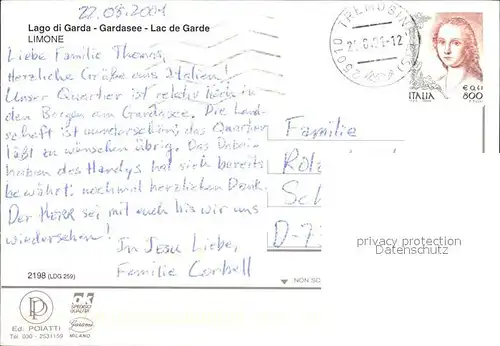 22.08.2001
Lago di Garda - Gardasee - Lac de Garde
LIMONE
Liebe Familie Thomas,
Herzliche Grüße aus Italien!
Unser Quartier ist relativ hoch in
den Bergen am Gardasee. Die Land-
schaft ist wunderschön, das Quartier
läßt zu wünschen übrig. Das Dabei-
haben des Handys hat sich bereits
bewährt; nochmal herzlichen Dank.
Der HERR sei mit euch bis wir uns
wiedersehen!
In Jesu Liebe,
Familie Corbell
25010 TREMOSINE
ITALIA
€ 0,41
800
Familie
Rol
Sch
D-7
privacy protection
Datenschutz
2198 (LDG 259)
NON SC
Ed. POIATTI
Tel. 030 - 2531159
ok
SPEDISCI
QUALITÀ
Garami
MILANO